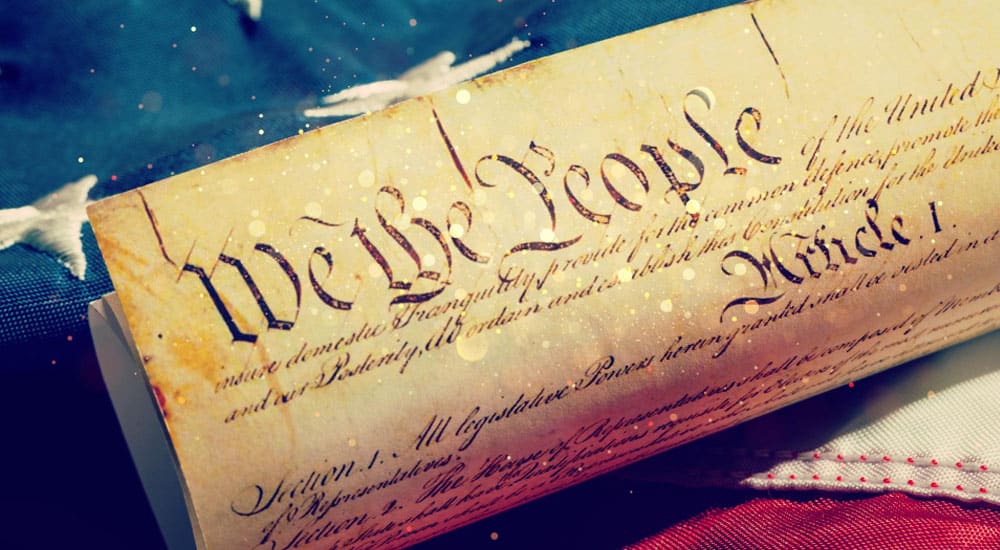 We the People of the United
insure domestic Tranquility, provide for the common defence, promote the
and our Posterity, do ordain and establish this Constitution for the United
Article. I.
Section. 1. All legislative Powers herein granted shall be vested in a
of Representatives.
Section. 2. The House of Representatives shall be composed of Members